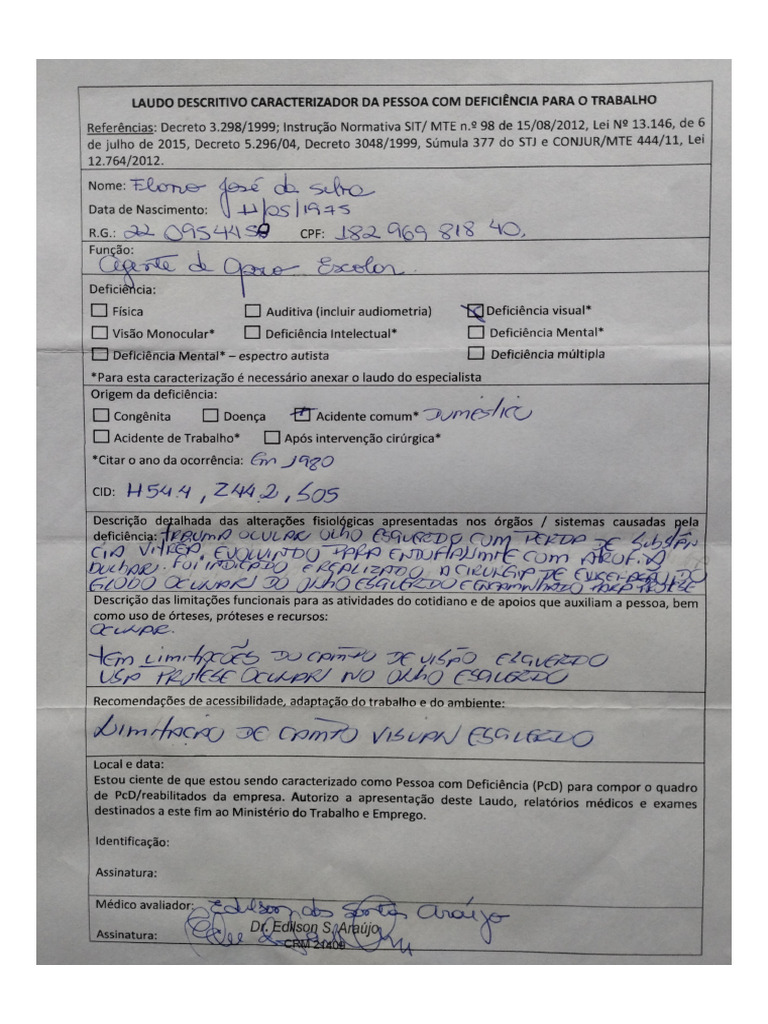 LAUDO DESCRITIVO CARACTERIZADOR DA PESSOA COM DEFICIÊNCIA PARA O TRABALHO
Referências: Decreto 3.298/1999; Instrução Normativa SIT/ MTE n.º 98 de 15/08/2012, Lei Nº 13.146, de 6
de julho de 2015, Decreto 5.296/04, Decreto 3048/1999, Súmula 377 do STJ e CONJUR/MTE 444/11, Lei
12.764/2012.
Nome: José da Silva
Data de Nascimento: 11/05/1975
R.G.: 22 0954459 CPF: 182 969 818 40.
Função:
Agente de Apoio Escolar
Deficiência:
Física Auditiva (incluir audiometria) Deficiência visual*
Visão Monocular* Deficiência Intelectual* Deficiência Mental*
Deficiência Mental* – espectro autista Deficiência múltipla
*Para esta caracterização é necessário anexar o laudo do especialista
Origem da deficiência:
Congênita Doença Acidente comum* Doméstico
Acidente de Trabalho* Após intervenção cirúrgica*
*Citar o ano da ocorrência: Em 1980
CID: H54.4, Z44.2, S05
Descrição detalhada das alterações fisiológicas apresentadas nos órgãos / sistemas causadas pela
deficiência: TRAUMA OCULAR OLHO ESQUERDO COM PERDA DE SUBSTÂN
CIA VITREA, EVOLUINDO PARA ENDOFTALMITE COM ATROFIA
OCULAR. FOI INDICADO E REALIZADO A CIRURGIA DE DO
GLOBO OCULAR DO OLHO ESQUERDO E ENCAMINHADO PARA PROTESE
Descrição das limitações funcionais para as atividades do cotidiano e de apoios que auxiliam a pessoa, bem
como uso de órteses, próteses e recursos:
OCULAR.
TEM LIMITAÇÕES DO CAMPO DE VISÃO ESQUERDO
USA PROTESE OCULAR NO OLHO ESQUERDO
Recomendações de acessibilidade, adaptação do trabalho e do ambiente:
LIMITAÇÃO DE CAMPO VISUAL ESQUERDO
Local e data:
Estou ciente de que estou sendo caracterizado como Pessoa com Deficiência (PcD) para compor o quadro
de PcD/reabilitados da empresa. Autorizo a apresentação deste Laudo, relatórios médicos e exames
destinados a este fim ao Ministério do Trabalho e Emprego.
Identificação:
Assinatura:
Médico avaliador: Edilson dos Santos Araújo
Assinatura: Dr. Edilson S. Araújo
CRM 21409